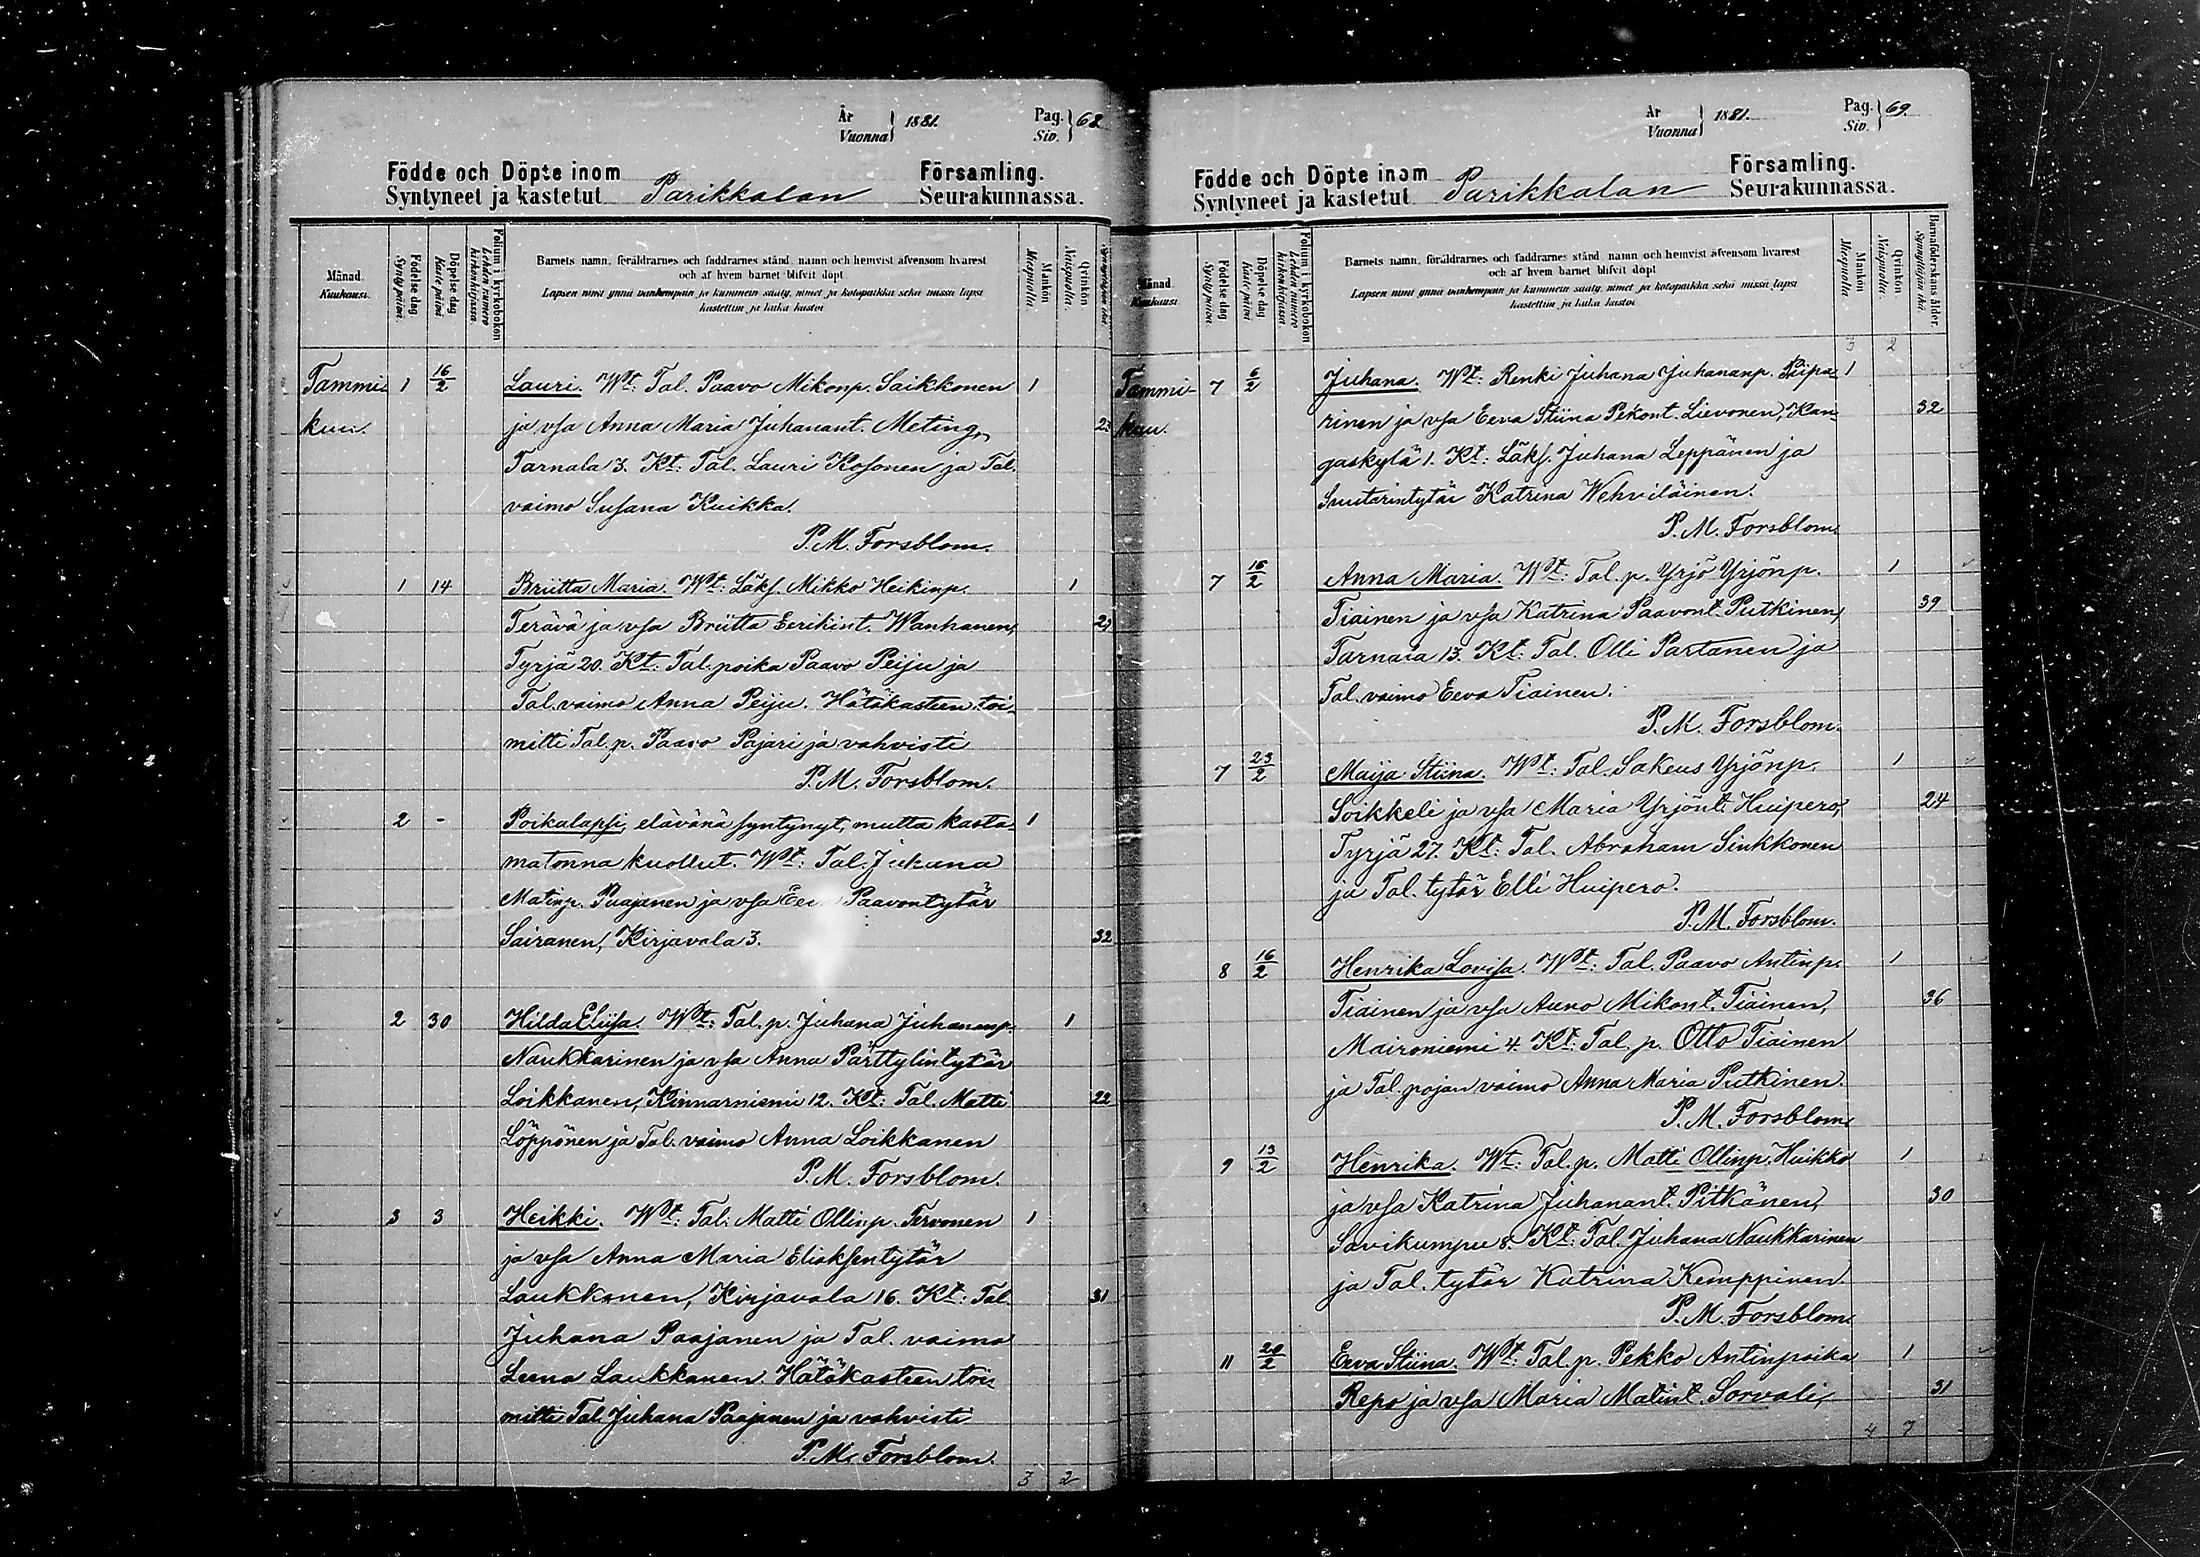 År
Vuonna } 1881.
Pag.
Siv. } 68
Födde och Döpte inom Parikkalan Församling.
Syntyneet ja kastetut Seurakunnassa.
Månad.
Kuukausi.
Födelse dag
Synty päivä.
Döpelse dag
Kaste päivä
Folium i kyrkobokon
Lehden numero
kirkonkirjassa
Barnets namn, föräldrarnes och faddrarnes stånd, namn och hemvist äfvensom hvarest
och af hvem barnet blifvit döpt
Lapsen nimi ynnä vanhempain ja kummein sääty, nimet ja kotopaikka sekä missä lapsi
kastettiin ja kuka kastoi
Mankön
Miespuolta.
Qvinkön
Naispuolta.
Tammi- 1 16/2 Lauri. Wt: Tal. Paavo Mikonp. Saikkonen 1
kuu. ja vsa Anna Maria Juhanant. Meting, 23
Tarnala 3. Kt: Tal. Lauri Kosonen ja Tal.
vaimo Susana Kuikka.
P. M. Forsblom.
1 14 Briitta Maria. Wt: Läks. Mikko Heikinp. 1
Terävä ja vsa Briitta Eerikint. Wanhanen,
Tyrjä 20. Kt: Tal. poika Paavo Peiju ja
Tal. vaimo Anna Peiju. Hätäkasteen toi-
mitti Tal. p. Paavo Pajari ja vahvisti
P. M. Forsblom.
2 - Poikalapsi, elävänä syntynyt, mutta kasta- 1
matonna kuollut. Wt: Tal. Juhana
Matinp. Paajanen ja vsa Eeva Paavontytär
Sairanen, Kirjavala 3. 32
2 30 Hilda Eliisa. Wt: Tal. p. Juhana Juhananp. 1
Naukkarinen ja vsa Anna Pärttylintytär
Loikkanen, Kinnarniemi 12. Kt: Tal. Matti 22
Löppönen ja Tal. vaimo Anna Loikkanen
P. M. Forsblom.
3 3 Heikki. Wt: Tal. Matti Ollinp. Tervonen 1
ja vsa Anna Maria Eliaksentytär
Laukkanen, Kirjavala 16. Kt: Tal. 31
Juhana Paajanen ja Tal. vaimo
Leena Laukkanen. Hätäkasteen toi-
mitti Tal. Juhana Paajanen ja vahvisti
P. M. Forsblom.
3 2
År
Vuonna } 1881.
Pag.
Siv. } 69.
Födde och Döpte inom Parikkalan Församling.
Syntyneet ja kastetut Seurakunnassa.
Månad
Kuukausi.
Födelse dag
Synty päivä.
Döpelse dag
Kaste päivä
Folium i kyrkobokon
Lehden numero
kirkonkirjassa.
Barnets namn, föräldrarnes och faddrarnes stånd, namn och hemvist äfvensom hvarest
och af hvem barnet blifvit döpt
Lapsen nimi ynnä vanhempain ja kummein sääty, nimet ja kotopaikka sekä missä lapsi
kastettiin ja kuka kastoi
Mankön
Miespuolta
Qvinkön
Naispuolta.
Barnaföderskans ålder.
Synnyttäjän ikä.
3 2
Tammi- 7 6/2 Juhana. Wt: Renki Juhana Juhananp. Piipa- 1
kuu. rinen ja vsa Eeva Stiina Pekont. Lievonen, Kan- 32
gaskylä 1. Kt: Läks. Juhana Leppänen ja
Suutarintytär Katrina Wehviläinen.
P. M. Forsblom.
7 16/2 Anna Maria. Wt: Tal. p. Yrjö Yrjönp. 1
Tiainen ja vsa Katrina Paavont. Putkinen, 39
Tarnala 13. Kt: Tal. Olli Partanen ja
Tal. vaimo Eeva Tiainen.
P. M. Forsblom.
7 23/2 Maija Stiina. Wt: Tal. Sakeus Yrjönp. 1
Soikkeli ja vsa Maria Yrjönt. Huipero, 24
Tyrjä 27. Kt: Tal. Abraham Sinkkonen
ja Tal. tytär Elli Huipero.
P. M. Forsblom.
8 16/2 Henrika Lovisa. Wt: Tal. Paavo Antinp. 1
Tiainen ja vsa Auno Mikont. Tiainen, 36
Maironiemi 4. Kt: Tal. p. Otto Tiainen
ja Tal. pojan vaimo Anna Maria Putkinen.
P. M. Forsblom.
9 13/2 Henrika. Wt: Tal. p. Matti Ollinp. Huikko 1
ja vsa Katrina Juhanant. Pitkänen, 30
Savikumpu 8. Kt: Tal. Juhana Naukkarinen
ja Tal. tytär Katrina Kemppinen.
P. M. Forsblom.
11 20/2 Eeva Stiina. Wt: Tal. p. Pekko Antinpoika 1
Repo ja vsa Maria Matint. Sorvali, 31
4 7